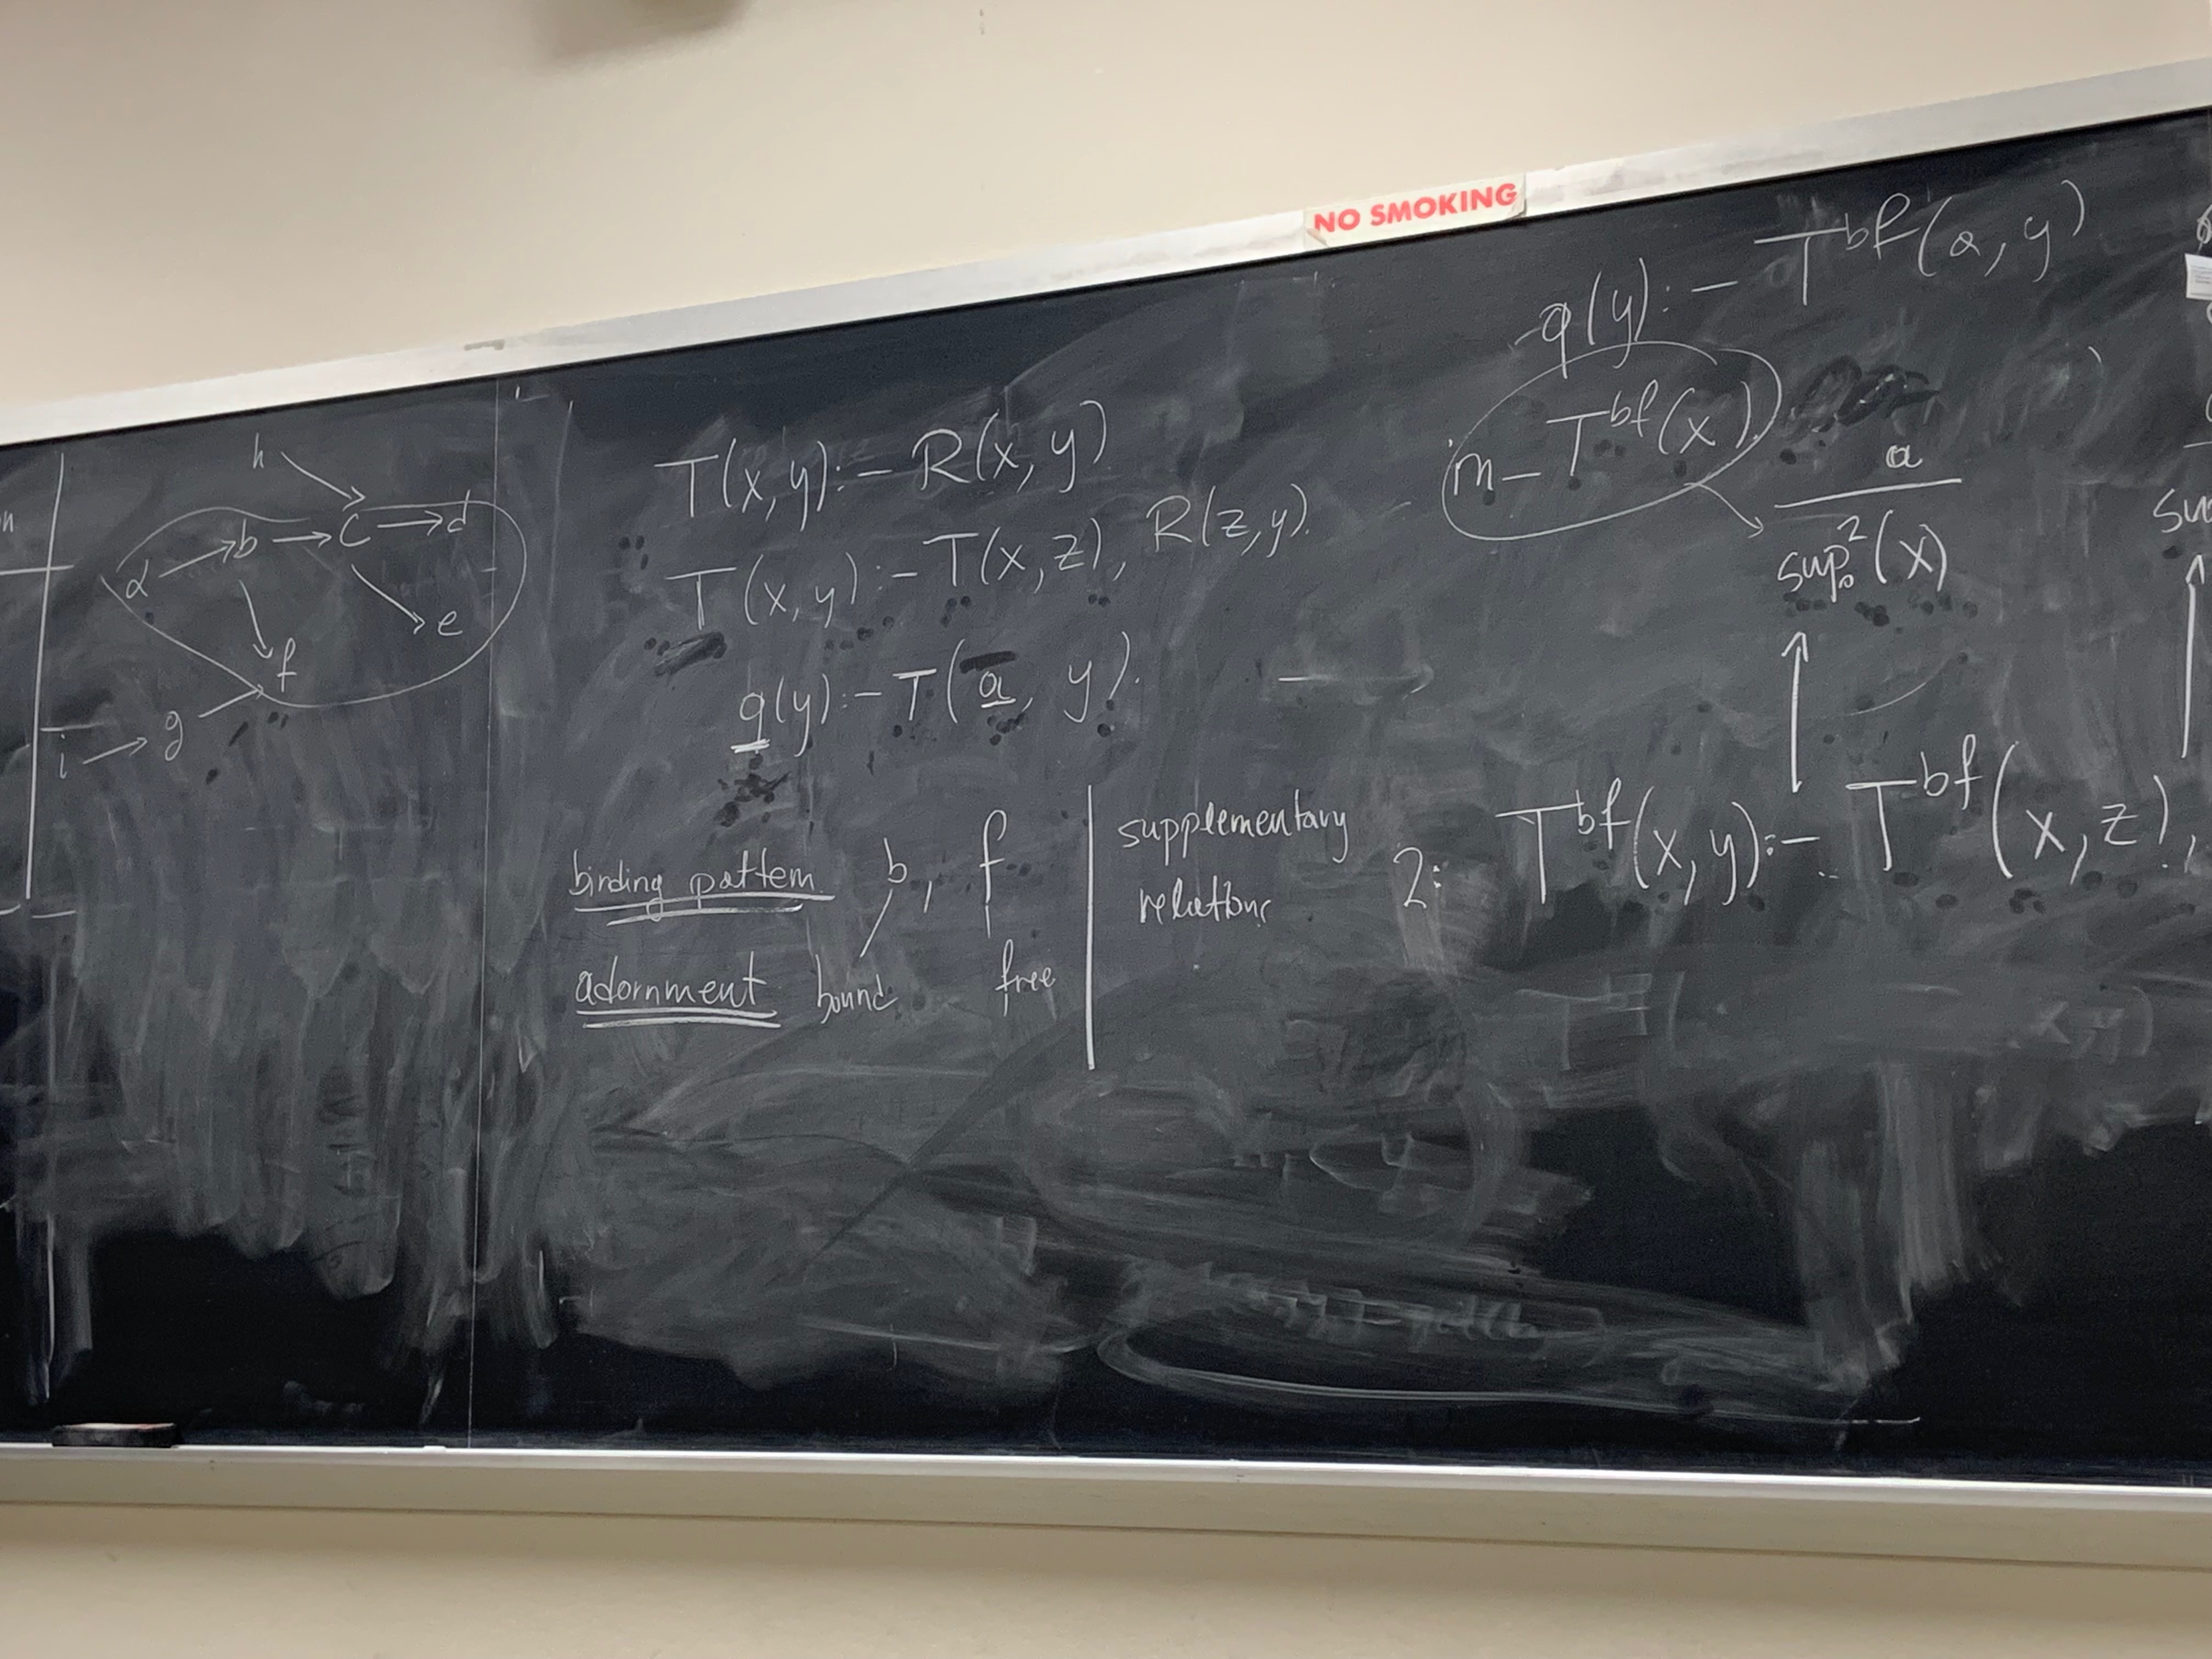 NO SMOKING
h
a → b → c → d
e
f
i → g
T(x,y):- R(x,y)
T(x,y):- T(x,z), R(z,y).
q(y):- T(a, y).
binding pattern b, f
adornment bound free
supplementary
relations
q(y):- T^bf(a,y)
m_T^bf(x)
a
sup²₀(x)
2: T^bf(x,y):- T^bf(x,z),